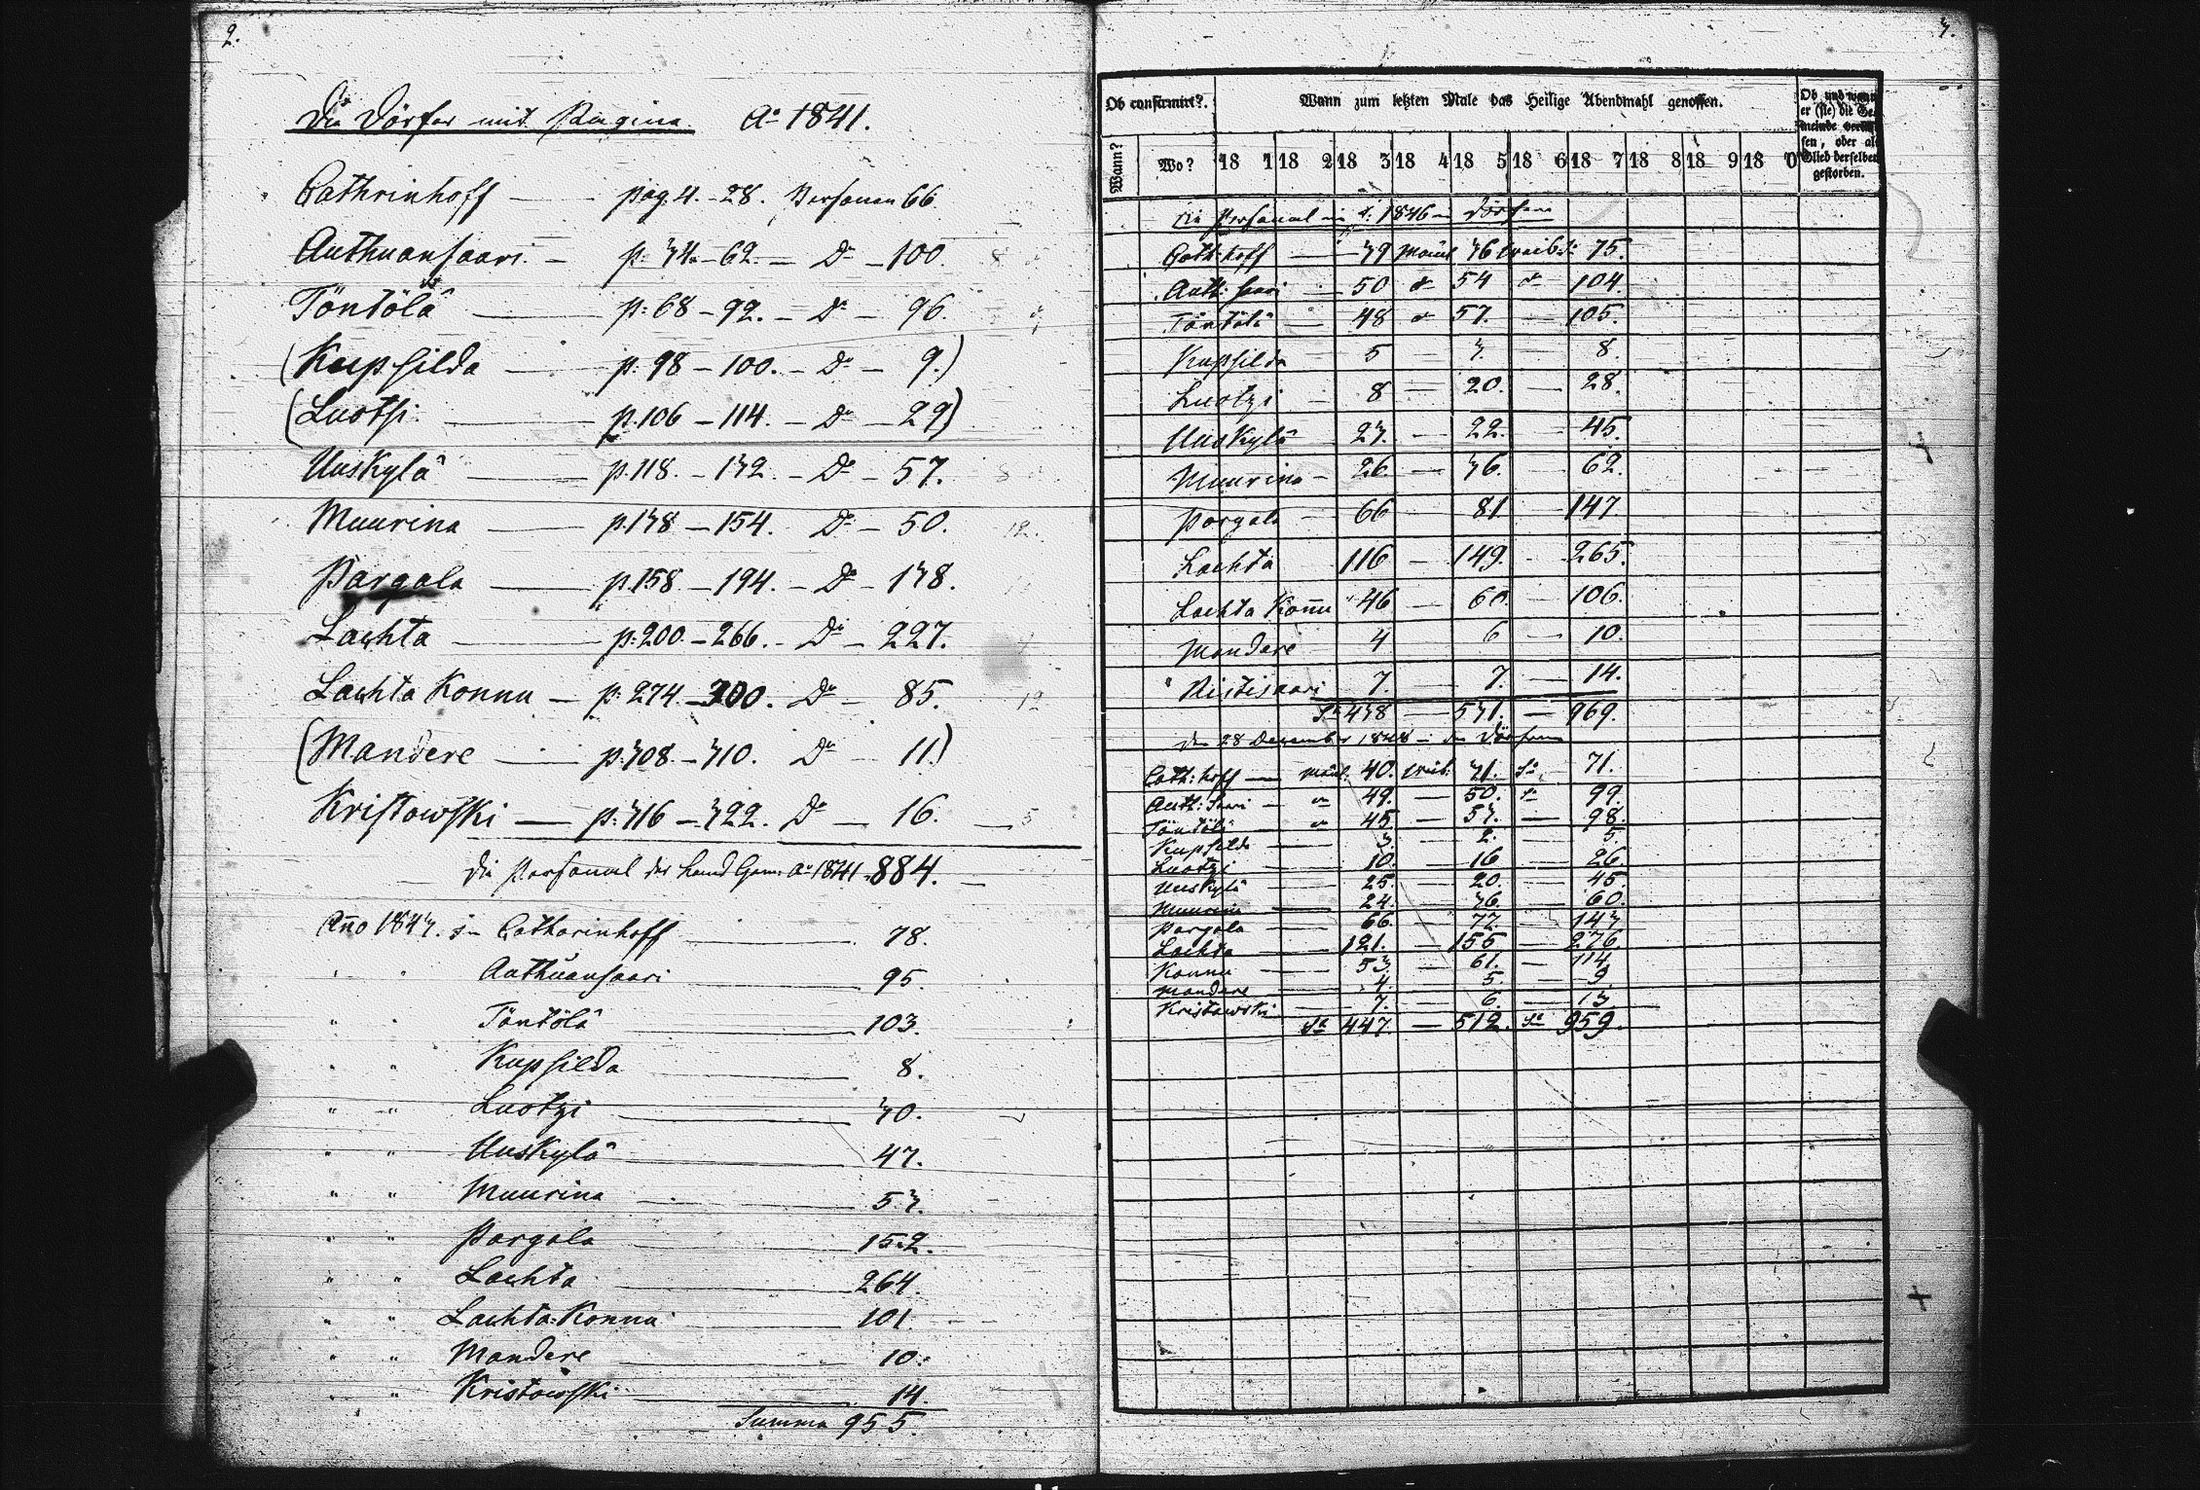 2.
Die Dörfer mit Pagina. Aō 1841.
Cathrinhoff — pag. 4. - 28. Personen 66.
Authuansaari. — p. 34. - 62. — Do — 100.
Töntölä — p: 68 - 92. — Do — 96.
(Kupsilda — p. 98 - 100. — Do — 9.)
(Luotsi. — p. 106 - 114. — Do — 29)
Uuskylä — p. 118. - 132. — Do — 57.
Muurina — p. 138 - 154. Do — 50.
Pargala — p. 158. - 194. — Do — 138.
Lachta — p: 200. - 266. - Do — 227.
Lachta Konnu — p. 274. - 300. Do — 85.
(Mandere — p. 308. - 310. Do — 11.)
Kristowski — p. 316 - 322. Do — 16.
Die Personal der Land Gem: Aō 1841 = 884.
Año 1843. in Catharinhoff — 78.
" " Authuansaari — 95.
" " Töntölä — 103.
" " Kupsilda — 8.
" " Luotzi — 30.
" " Uuskylä — 47.
" " Muurina — 53.
" " Pargala — 152.
" " Lachta — 264.
" " Lachta-Konnu — 101.
" " Mandere — 10.
" " Kristowski — 14.
Summa 955.
3.
Ob confirmirt?
Wann?
Wo?
Wann zum letzten Male das Heilige Abendmahl genossen.
18 1 18 2 18 3 18 4 18 5 18 6 18 7 18 8 18 9 18 0
Ob und wann er (sie) die Gemeinde verlassen, oder als Glied derselben gestorben.
Die Personal in d: 1846 in Dörfern
Cath:hoff — 39 männl 36 weibl: 75.
Auth: saari — 50 do 54 do 104.
Töntölä — 48 do 57. — 105.
Kupsilda 5 — 3. — 8.
Luotzi — 8 — 20. — 28.
Uuskylä — 23. — 22. — 45.
Muurina — 26. — 36. — 62.
Pargala — 66 — 81 — 147
Lachta 116 — 149. — 265.
Lachta Koñu 46 — 60. — 106.
Mandere 4 6 — 10.
Ristisaari 7. — 7. — 14.
Sa 438 — 531. — 969.
den 28 Dezember 1848 in den Dörfern
Cath: hoff — männl. 40. weib. 31. Sa. 71.
Auth: Saari — do 49. — 50. Sa 99.
Töntölä — do 45. — 53. — 98.
Kupsilda — 3. — 2. — 5
Luotzi — 10. — 16 — 26.
Uuskylä — 25. — 20. — 45.
Muurina — 24. — 36. — 60.
Pargala — 66. — 77. — 143.
Lachta — 121. — 155 — 276.
Konnu — 53. — 61. — 114.
Mandere — 4. — 5. — 9.
Kristowski — 7. — 6. — 13.
Sa 447. — 512. Sa 959.